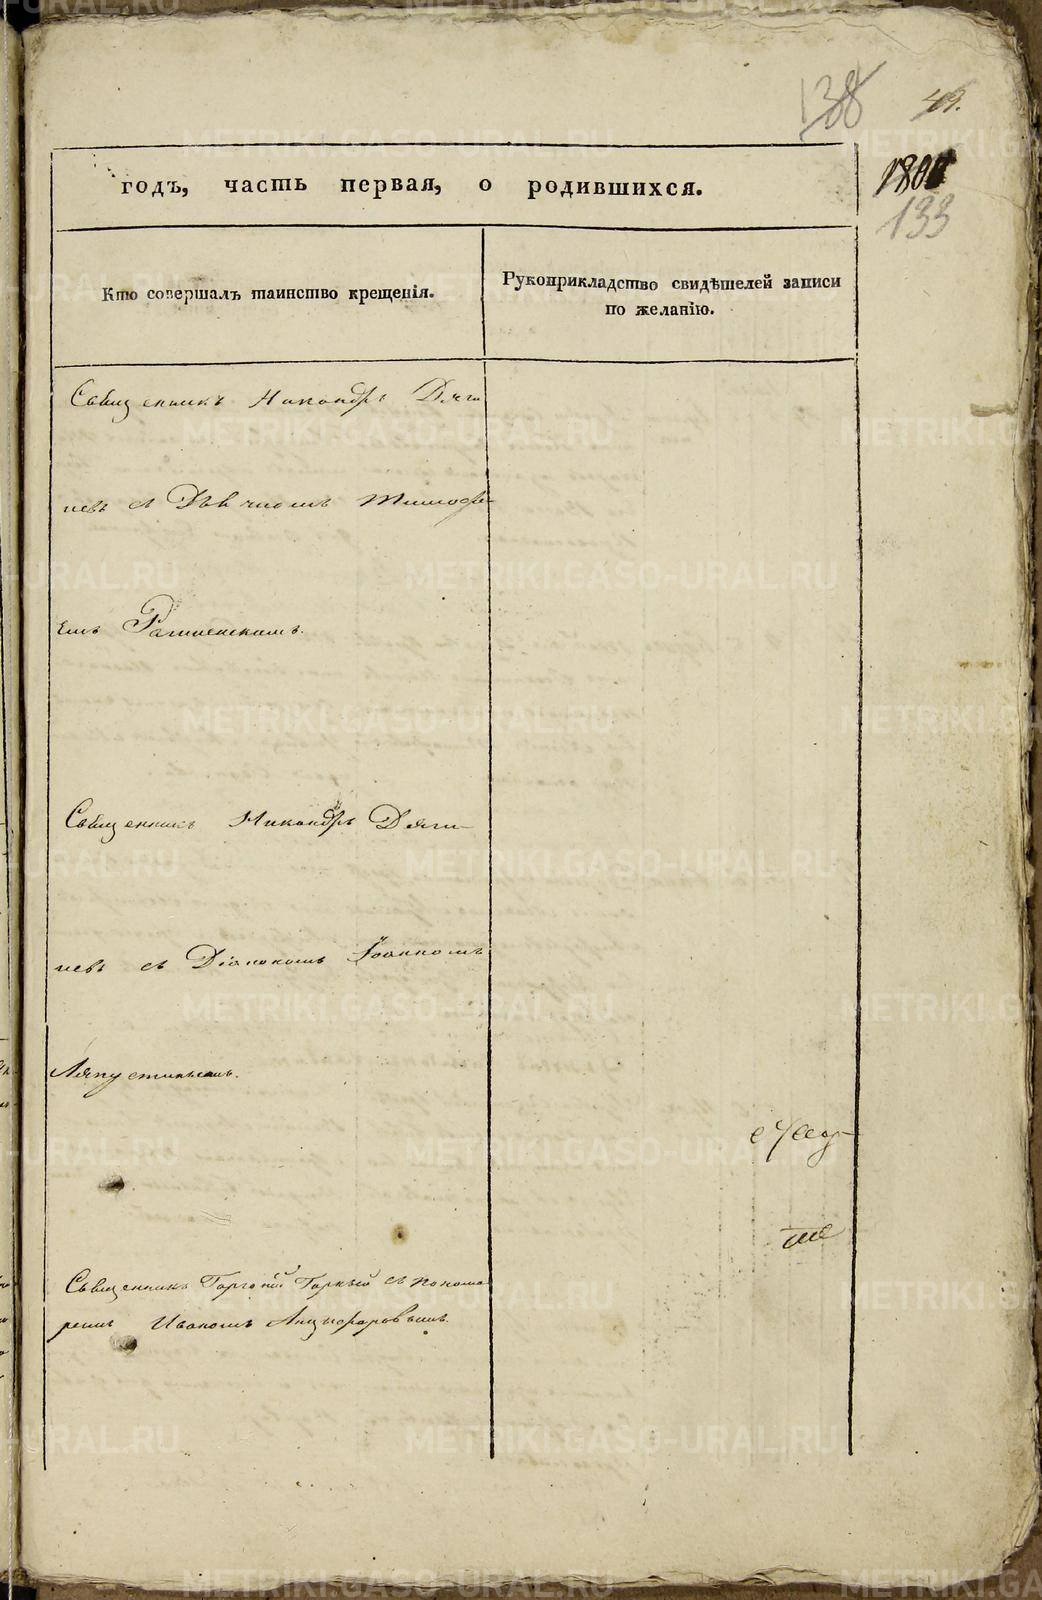 138 49.
годъ, часть первая, о родившихся. 1800
133
Кто совершалъ таинство крещенія.
Рукоприкладство свидѣтелей записи
по желанію.
Священникъ Никандръ Дяги
левъ съ Дьячкомъ Тимофе-
емъ
Священникъ Никандръ Дяги-
левъ съ Діакономъ Іоанномъ
Ляпустинымъ.
Священникъ Горгоній Горный съ понома
ремъ Иваномъ Анциферовымъ.
METRIKI.GASO-URAL.RU